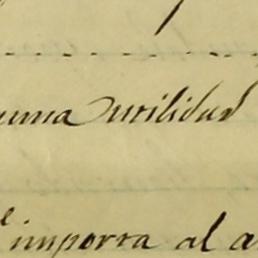 suma utilidad
importa al a